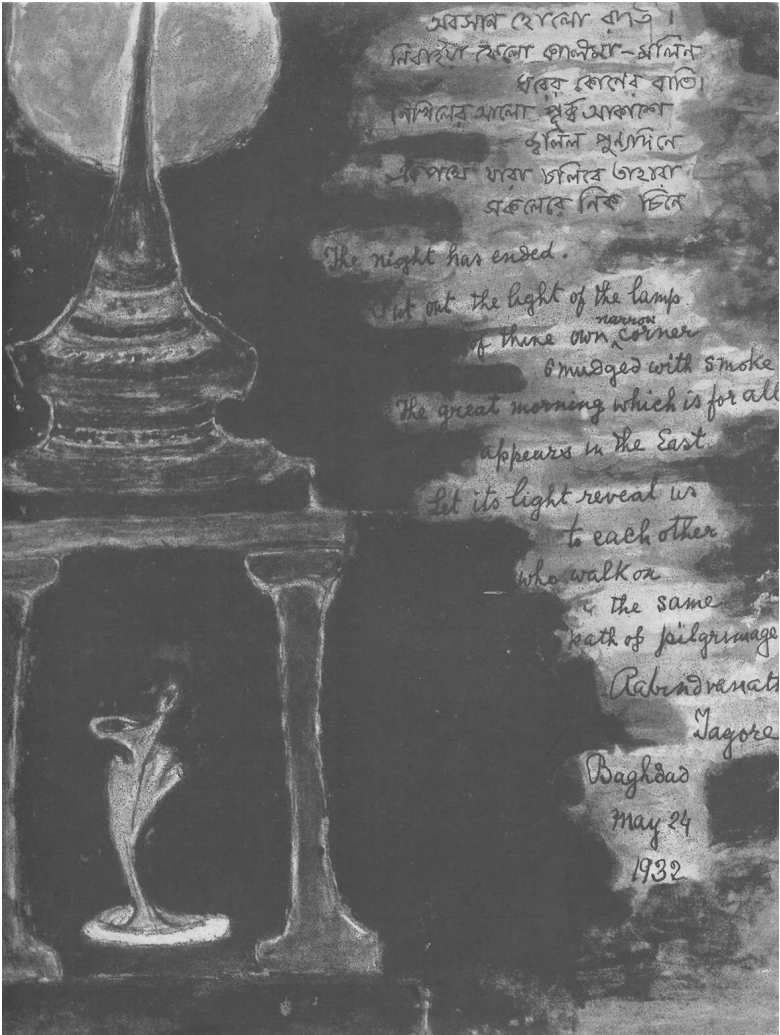 অবসান হোলো রাতি ।
নিবাইয়া ফেলো কালিমা-মলিন
ঘরের কোণের বাতি।
নিখিলের আলো পূর্ব্ব আকাশে
জ্বলিল পুণ্যদিনে
একপথে যারা চলিবে তাহারা
সকলেরে নিক্‌ চিনে
The night has ended.
Put out the light of the lamp
of thine own narrow corner
smudged with smoke
The great morning which is for all
appears in the East.
Let its light reveal us
to each other
who walk on
the same
path of pilgrimage
Rabindranath
Tagore
Baghdad
May 24
1932